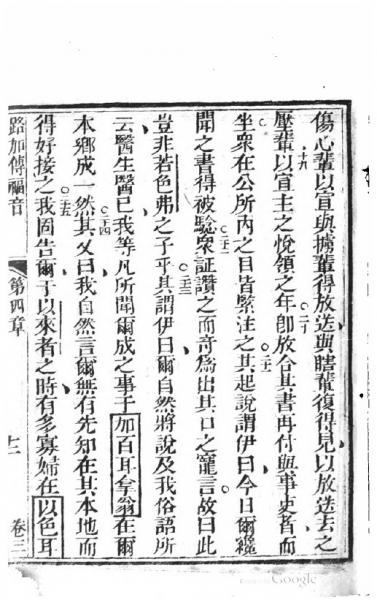 傷心輩以宣與擄輩得放送與瞎輩復得見以放送去之
壓輩以宣主之悅領之年○卽放合其書再付與事吏者而
十九
二十
坐衆在公所內之目皆緊注之○其起說謂伊曰今日爾纔
二一
聞之書得被驗○衆証讚之而奇爲出其口之寵言故曰此
二二
豈非若色弗之子乎○其謂伊曰爾自然將說及我俗語所
二三
云醫生醫己我等凡所聞爾成之事于加百耳拿翁在爾
本鄉成一然○其又曰我自然言爾無有先知在其本地而
二四
得好接之○我固告爾于以來者之時有多寡婦在以色耳
二五
路加傳福音
第四章
十二
卷三
Google